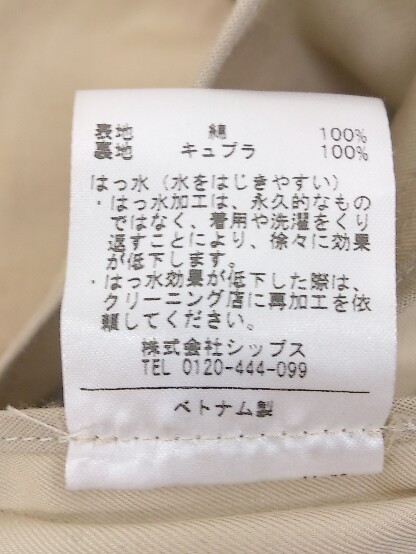 表地 綿 100%
裏地 キュプラ 100%
はっ水（水をはじきやすい）
・はっ水加工は、永久的なもの
ではなく、着用や洗濯をくり
返すことにより、徐々に効果
が低下します。
・はっ水効果が低下した際は、
クリーニング店に再加工を依
頼してください。
株式会社シップス
TEL 0120-444-099
ベトナム製